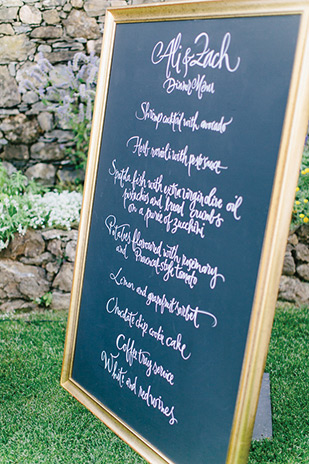 Ali & Zach
Dinner Menu
Shrimp cocktail with avocado
Herb ravioli with pesto sauce
Spatula fish with extra virgin olive oil
pistachios and bread crumbs
on a purée of zucchini
Potatoes flavoured with rosemary
and Provencal style tomato
Lemon and grapefruit sorbet
Chocolate chip cookie cake
Coffee tray service
White and red wines